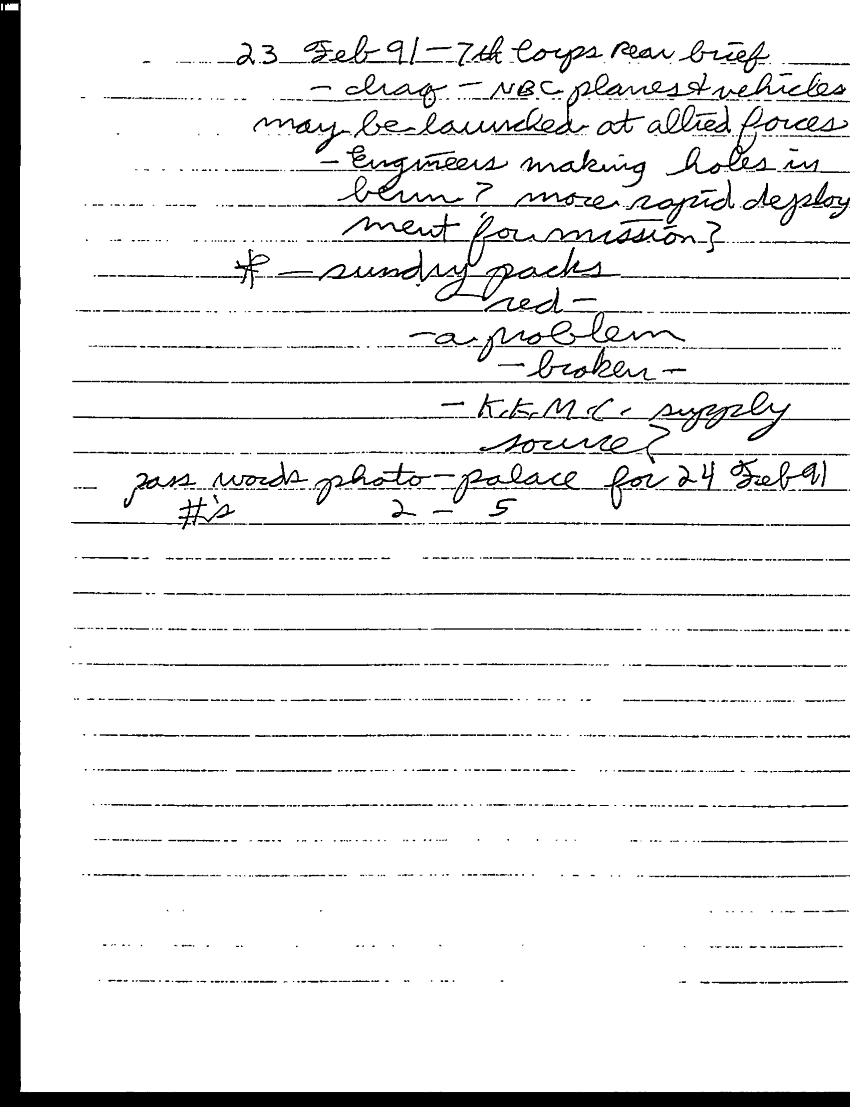 23 Feb 91 - 7th Corps Rear brief
- - NBC planes & vehicles
may be launched at allied forces
- Engineers making holes in
berm? more rapid deploy
ment for mission?
* - sundry packs
red -
- a problem
- broken -
- K.K.M.C. supply
source?
pass words photo - palace for 24 Feb 91
#'s 2 - 5